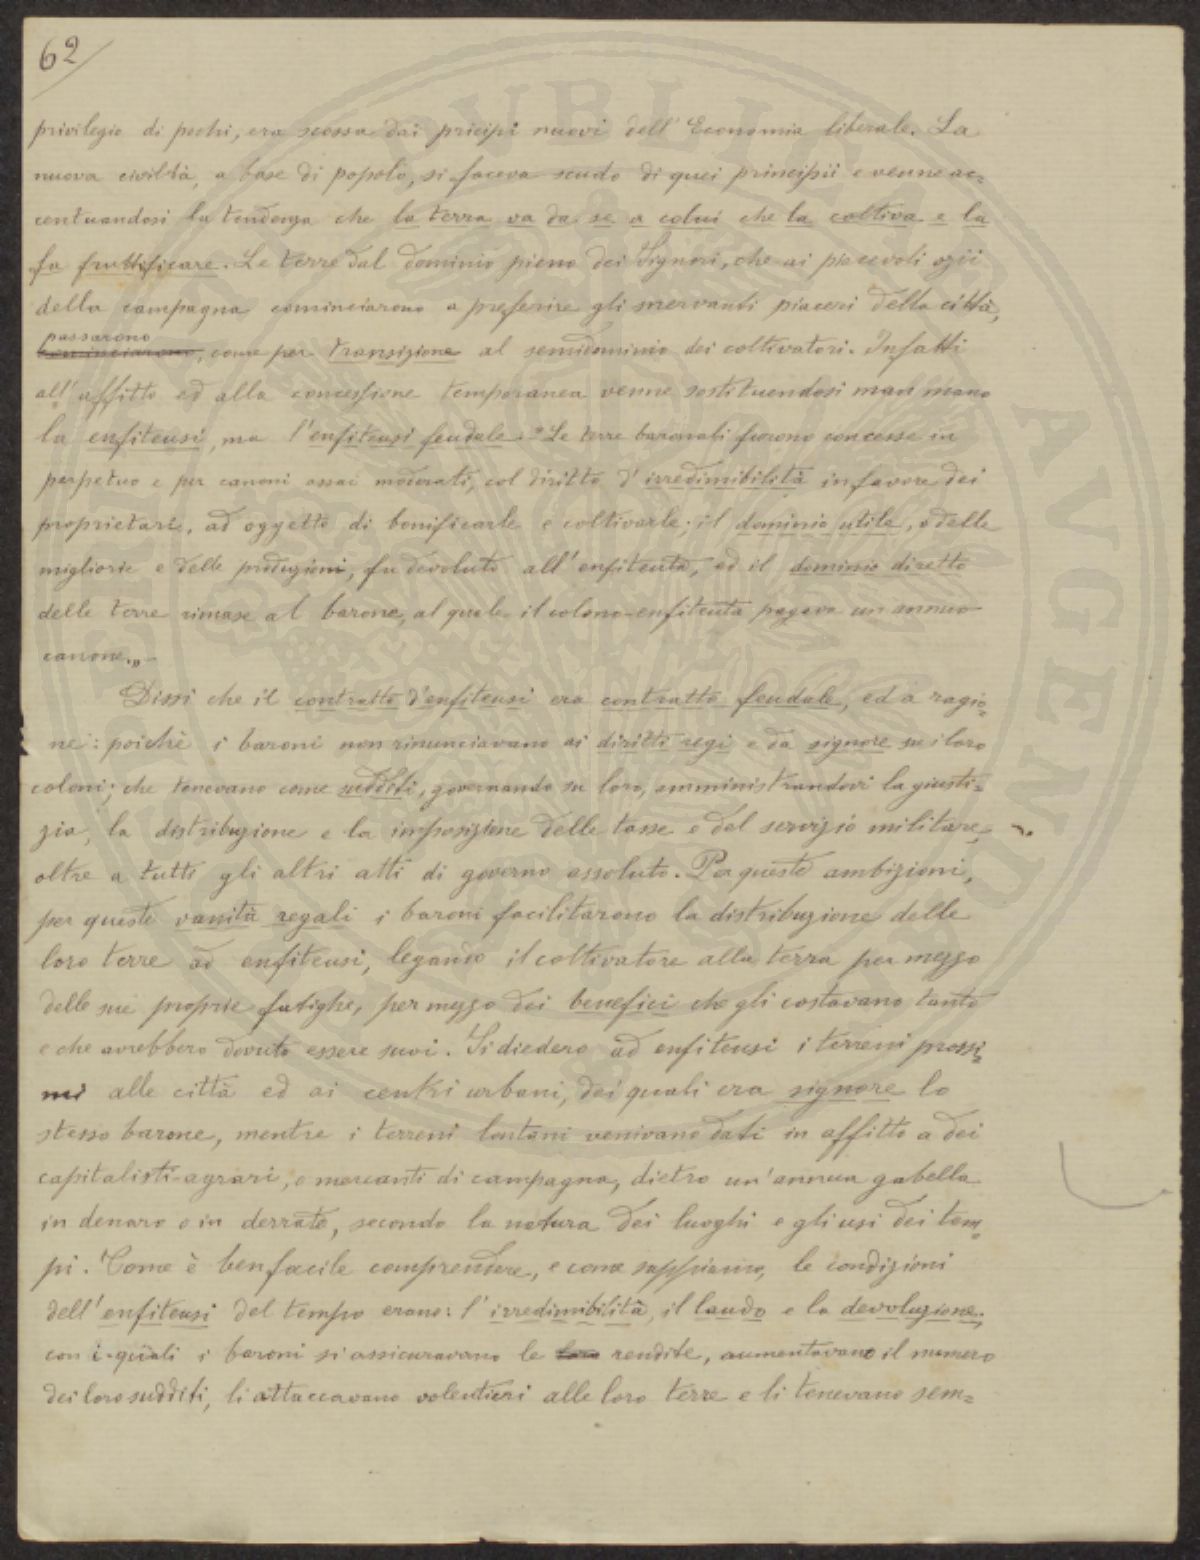 62
privilegio di pochi, era scossa dai pricipi nuovi dell' Economia liberale. La
nuova civiltà, a base di popolo, si faceva scudo di quei principii e venne ac=
centuandosi la tendenza che la terra va da se a colui che la coltiva e la
fa fruttificare. Le terre dal dominio pieno dei Signori, che ai piacevoli ozii
della campagna cominciarono a preferire gli snervanti piaceri della città,
passarono
cominciarono, come per transizione al semidominio dei coltivatori. Infatti
all' affitto ed alla concessione temporanea venne sostituendosi man mano
la enfiteusi, ma l'enfiteusi feudale. "Le terre baronali furono concesse in
perpetuo e per canoni assai moderati, col diritto d' irredimibilità in favore dei
proprietari, ad oggetto di bonificarle e coltivarle; il dominio utile, o delle
migliorie e delle produzioni, fu devoluto all' enfiteuta, ed il dominio diretto
delle terre rimase al barone, al quale il colono-enfiteuta pagava un annuo
canone.„
Dissi che il contratto d'enfiteusi era contratto feudale, ed a ragio=
ne: poichè i baroni non rinunciavano ai diritti regi e da signore su i loro
coloni; che tenevano come sudditi, governando su loro, amministrandovi la giusti=
zia, la distribuzione e la imposizione delle tasse e del servizio militare,
oltre a tutti gli altri atti di governo assoluto. Per queste ambizioni,
per queste vanità regali i baroni facilitarono la distribuzione delle
loro terre ad enfiteusi, legando il coltivatore alla terra per mezzo
delle sue proprie fatighe, per mezzo dei benefici che gli costavano tanto
e che avrebbero dovuto essere suoi. Si diedero ad enfiteusi i terreni prossi=
mi alle città ed ai centri urbani, dei quali era signore lo
stesso barone, mentre i terreni lontani venivano dati in affitto a dei
capitalisti-agrari, o mercanti di campagna, dietro un'annua gabella
in denaro o in derrate, secondo la natura dei luoghi e gli usi dei tem=
pi. Come è ben facile comprendere, e come sappiamo, le condizioni
dell' enfiteusi del tempo erano: l' irredimibilità, il laudo e la devoluzione;
con i quali i baroni si assicuravano le loro rendite, aumentavano il numero
dei loro sudditi, li attaccavano volentieri alle loro terre e li tenevano sem=